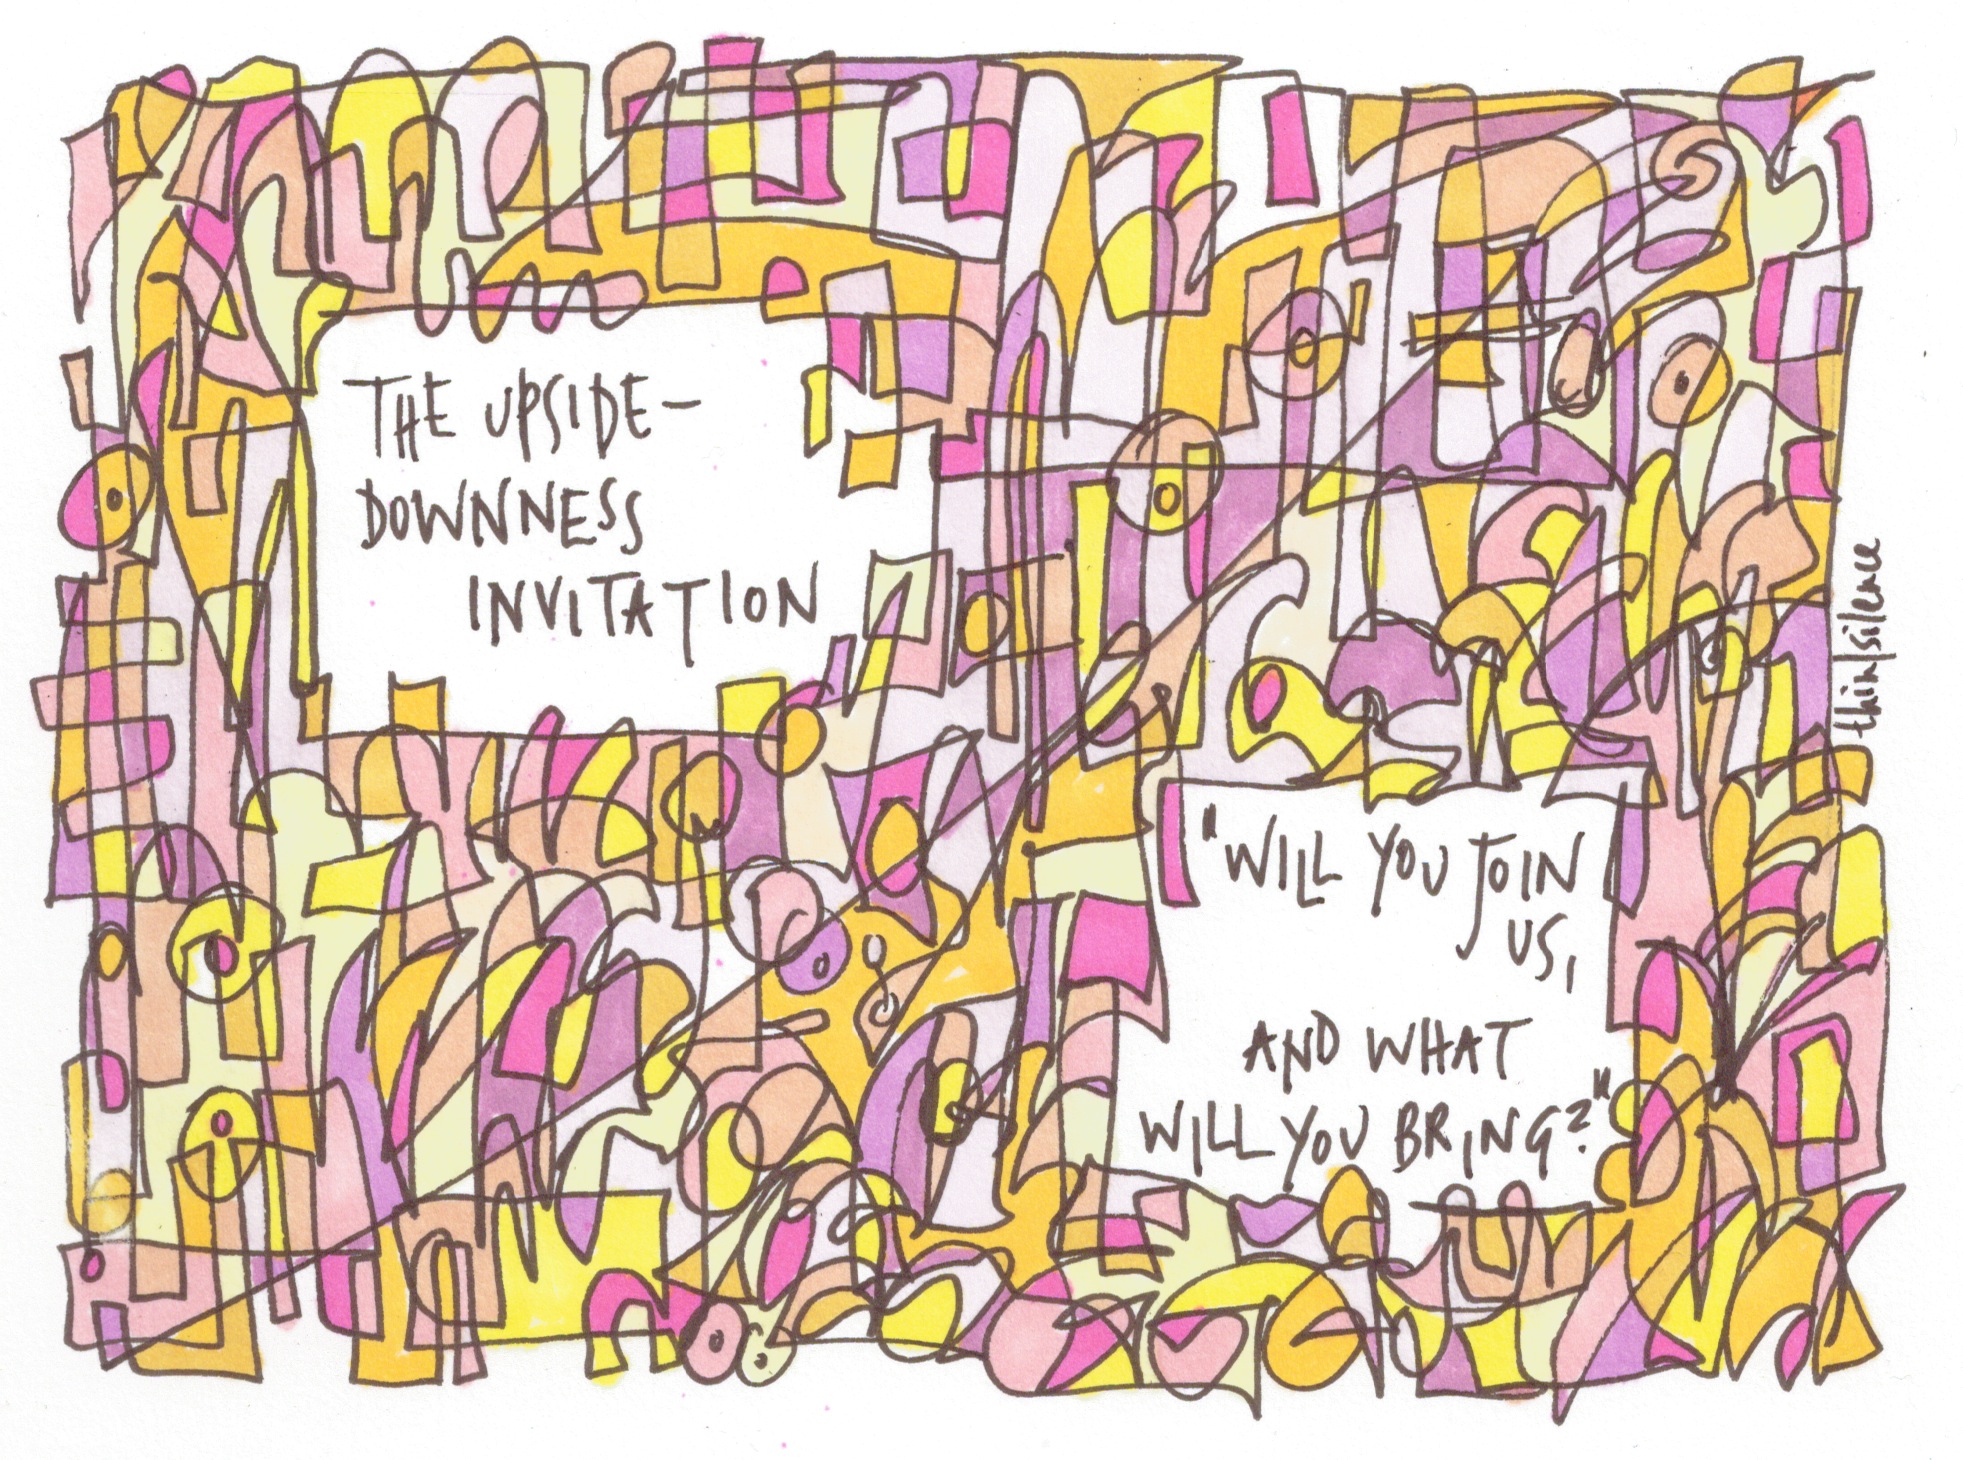 THE UPSIDE-
DOWNNESS
INVITATION
"WILL YOU JOIN
US,
AND WHAT
WILL YOU BRING?"
think|silence